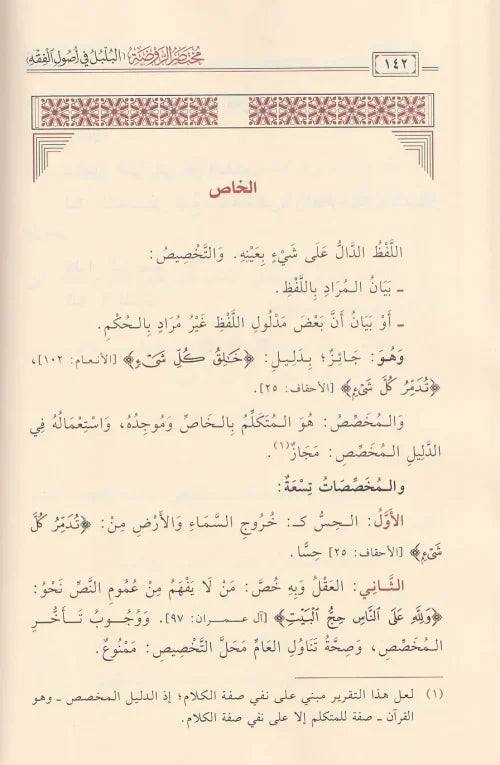 [١٤٢]
مُخْتَصَرُ الرَّوْضَةِ (البُلْبُلُ فِي أُصُولِ الفِقْهِ)
الخاص
اللَّفْظُ الدَّالُّ عَلَى شَيْءٍ بِعَيْنِهِ. وَالتَّخْصِيصُ:
ـ بَيَانُ المُرَادِ بِاللَّفْظِ.
ـ أَوْ بَيَانُ أَنَّ بَعْضَ مَدْلُولِ اللَّفْظِ غَيْرُ مُرَادٍ بِالحُكْمِ.
وَهُوَ: جَائِزٌ؛ بِدَلِيلِ: ﴿خَٰلِقُ كُلِّ شَىْءٍ﴾ [الأنعام: ١٠٢]،
﴿تُدَمِّرُ كُلَّ شَىْءٍ﴾ [الأحقاف: ٢٥].
وَالمُخَصِّصُ: هُوَ المُتَكَلِّمُ بِالخَاصِّ وَمُوجِدُهُ، وَاسْتِعْمَالُهُ فِي
الدَّلِيلِ المُخَصِّصِ: مَجَازٌ(١).
والمُخَصِّصَاتُ تِسْعَةٌ:
الأَوَّلُ: الحِسُّ كـ: خُرُوجِ السَّمَاءِ وَالأَرْضِ مِنْ: ﴿تُدَمِّرُ كُلَّ
شَىْءٍ﴾ [الأحقاف: ٢٥] حِسًّا.
الثَّانِي: العَقْلُ وَبِهِ خُصَّ: مَنْ لَا يَفْهَمُ مِنْ عُمُومِ النَّصِّ نَحْوُ:
﴿وَلِلَّهِ عَلَى النَّاسِ حِجُّ الْبَيْتِ﴾ [آل عمران: ٩٧]. وَوُجُوبُ تَأَخُّرِ
المُخَصِّصِ، وَصِحَّةُ تَنَاوُلِ العَامِّ مَحَلَّ التَّخْصِيصِ: مَمْنُوعٌ.
(١) لعل هذا التقرير مبني على نفي صفة الكلام؛ إذ الدليل المخصص ـ وهو
القرآن ـ صفة للمتكلم إلا على نفي صفة الكلام.